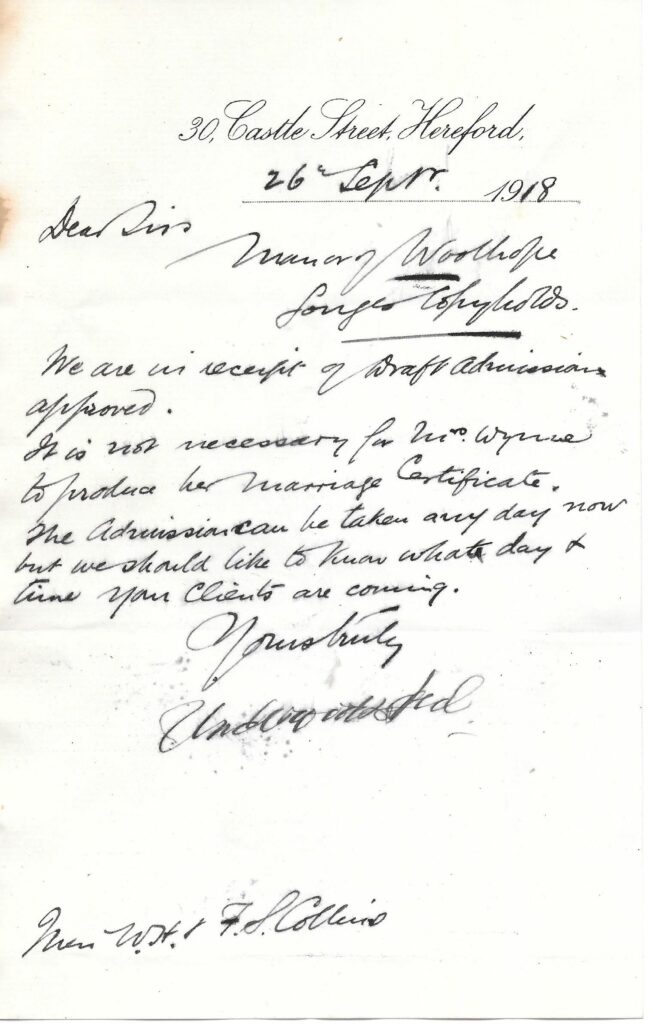 30, Castle Street, Hereford.
26th Septr. 1918
Dear Sirs
Manor of Woolhope
Copyholds.
We are in receipt of Draft Admission
approved.
It is not necessary for Mrs. Wynne
to produce her Marriage Certificate.
The Admission can be taken any day now
but we should like to know what day &
time your Clients are coming.
Yours truly
Messrs W.H. & F.S. Collins